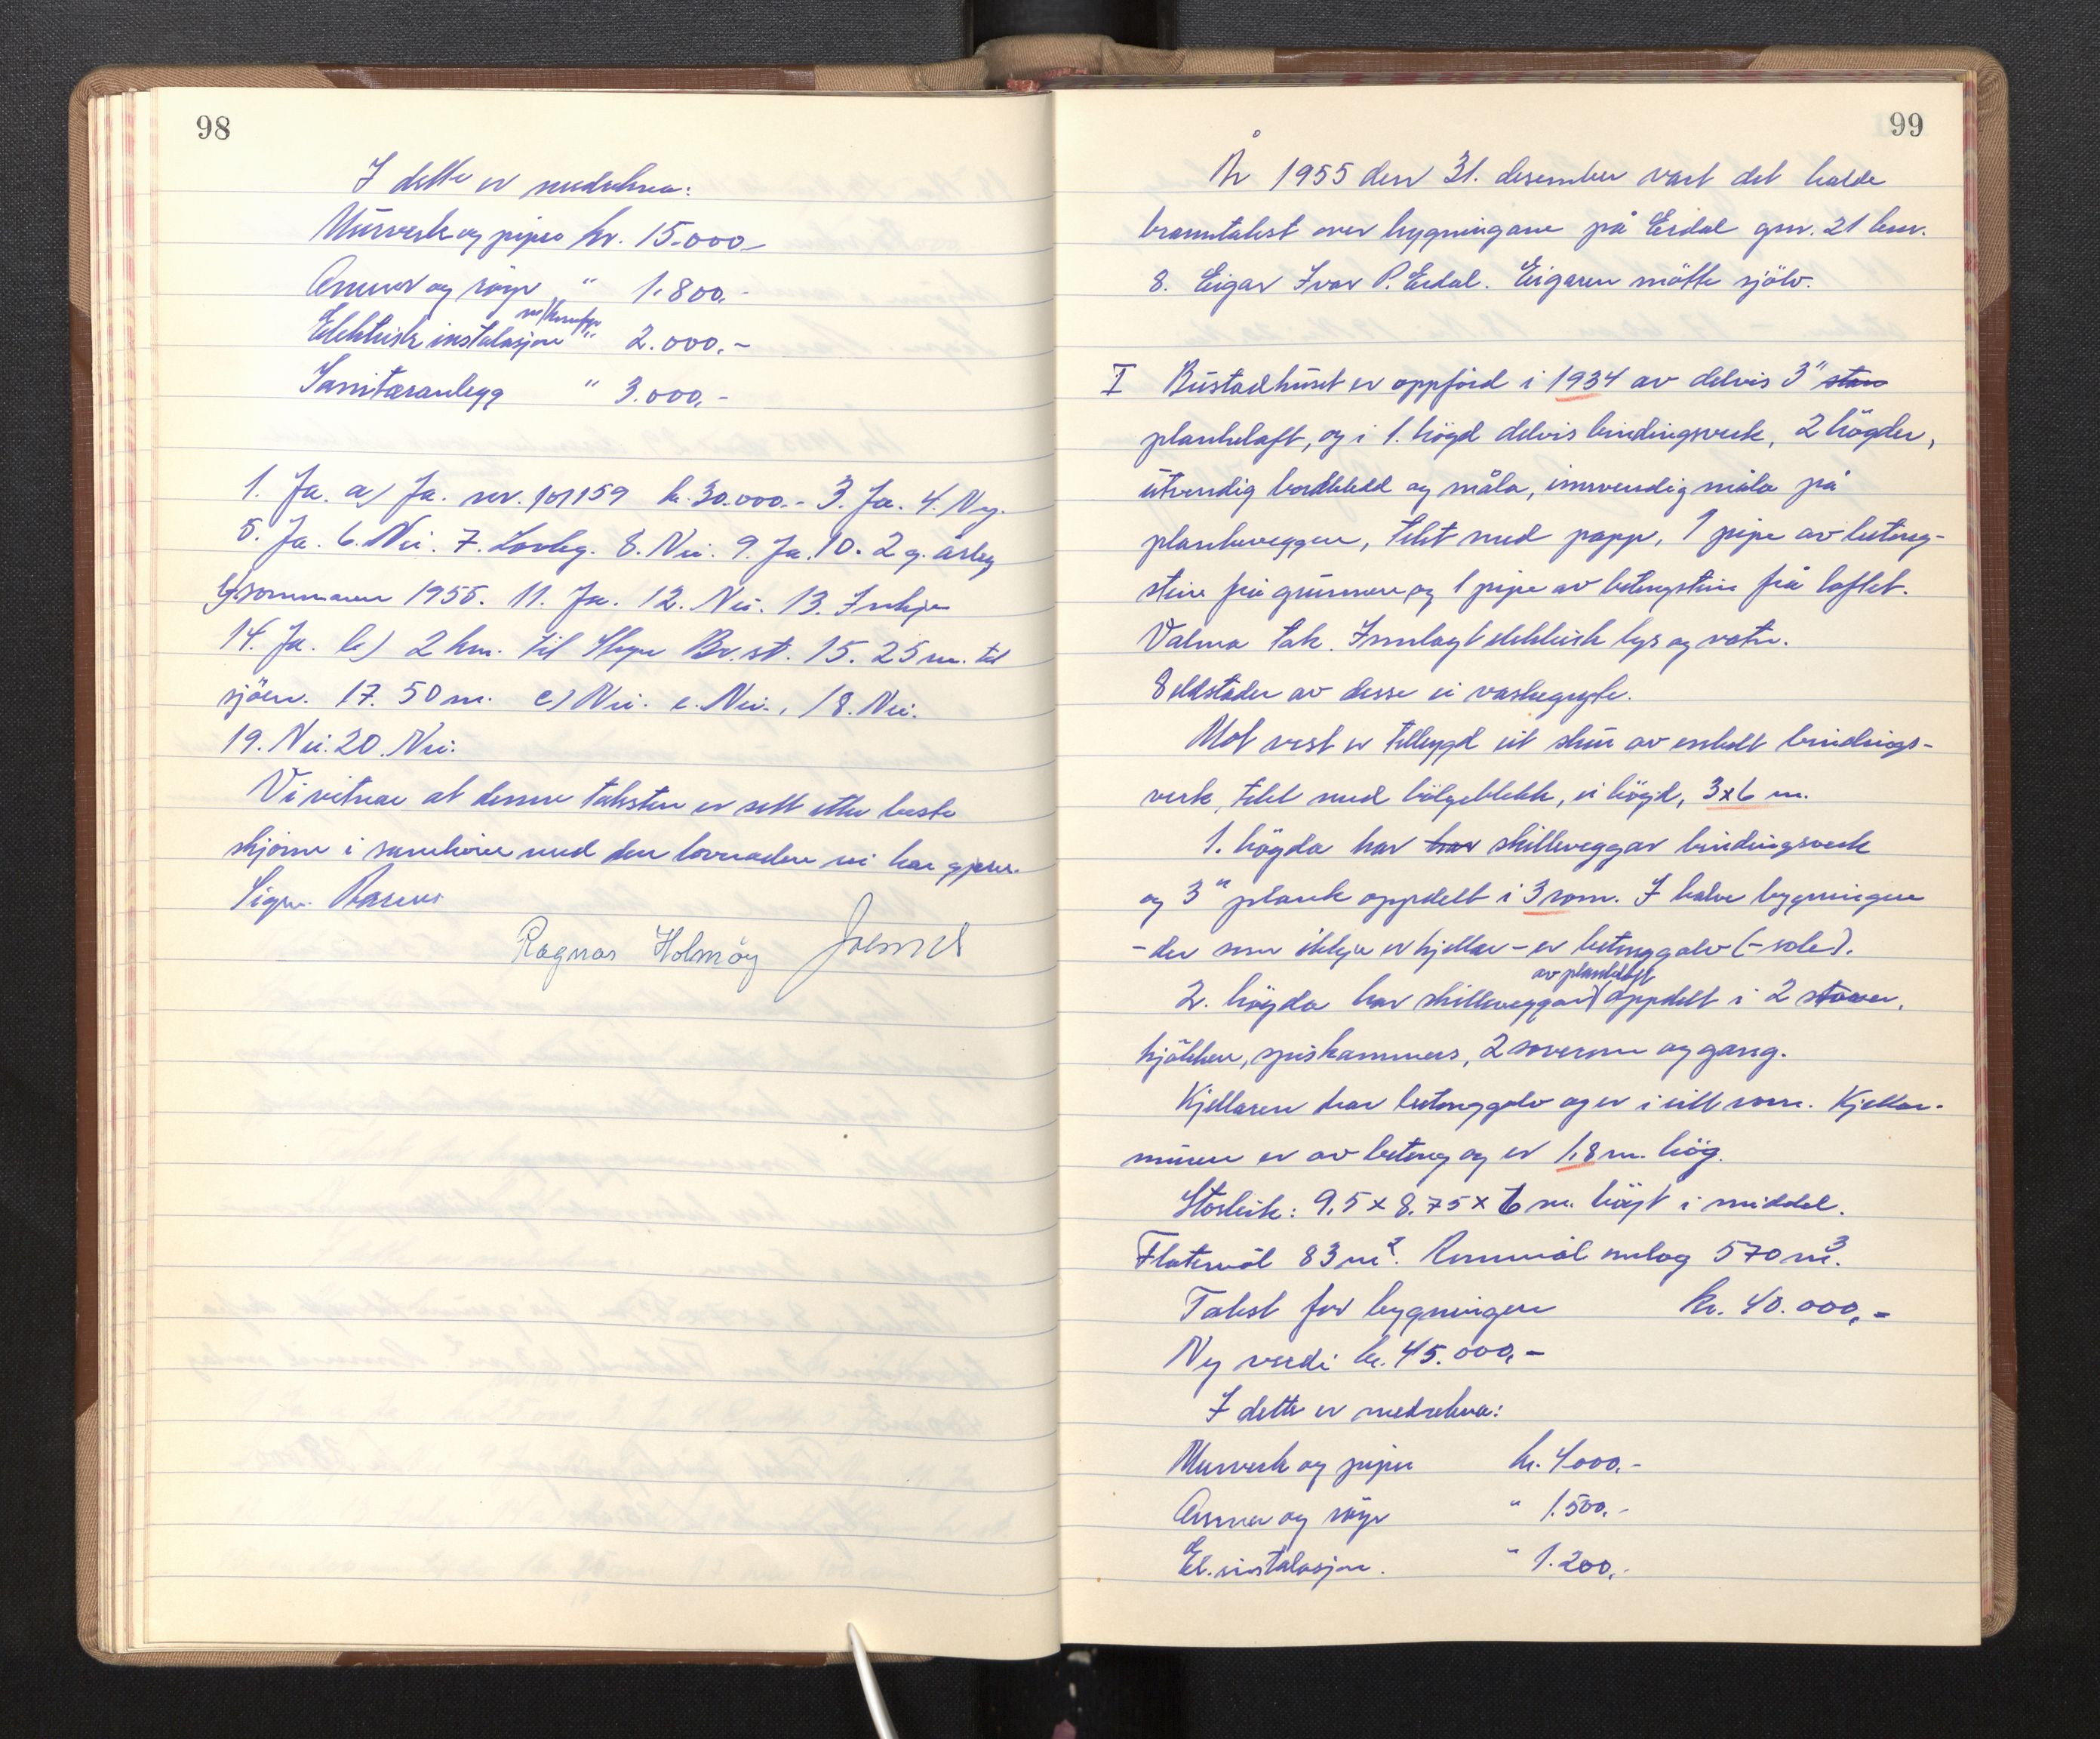 98
I dette er medrekna:
Murverk og piper kr. 15.000,-
Omnar og røyr " 1.800,-
Elektrisk instalasjon " 2.000,-
Sanitæranlegg " 3.000,-
1. Ja. a) Ja. nr. 101159 kr. 30.000.- 3. Ja. 4. Ny.
5. Ja. 6. Nei. 7. Lovleg. 8. Nei. 9. Ja. 10. 2 g. årleg
sommaren 1955. 11. Ja. 12. Nei. 13. Inkje
14. Ja. b) 2 km. til Br.st. 15. 25 m. til
sjöen. 17. 50 m. c) Nei. e. Nei., 18. Nei.
19. Nei. 20. Nei.
Vi vitnar at denne taksten er sett etter beste
skjönn i samhöve med den lovnaden vi har gjeve.
Sign. Rasmus
Ragnar Holmöy
99
År 1955 den 31. desember vart det halde
branntakst over bygningane på Eidal gnr. 21 bnr.
8. Eigar Ivar P. Eidal. Eigaren mötte sjölv.
I Bustadhuset er oppförd i 1934 av delvis 3" stav
plankelaft, og i 1. högd delvis bindingsverk, 2 högder,
utvendig bordkledd og måla, innvendig måla på
plankeveggen, tekt med papp, 1 pipe av betong-
stein frå grunnen og 1 pipe av betongstein frå loftet.
Valma tak. Innlagt elektrisk lys og vatn.
8 eldstader av desse ei vaskegryte.
Mot vest er tilbygd eit skur av enkelt bindings-
verk, tekt med bölgeblekk, ei högd, 3x6 m.
1. högda har har skilleveggar bindingsverk
og 3" plank oppdelt i 3 rom. I halve bygningen
- der som ikkje er kjellar - er betonggolv (-sole).
2. högda har skilleveggar av plankelaft oppdelt i 2 stover,
kjökken, spiskammers, 2 soverom og gang.
Kjellaren har betonggolv og er i eitt rom. Kjellar-
muren er av betong og er 1,8 m. hög.
Storleik: 9,5 x 8,75 x 6 m. högt i middel.
Flatemål 83 m². Rommål umlag 570 m³.
Takst for bygningen kr. 40.000,-
Ny verdi kr. 45.000,-
I dette er medrekna:
Murverk og piper kr. 4000,-
Omnar og røyr " 1.500,-
El. instalasjon. " 1.200,-